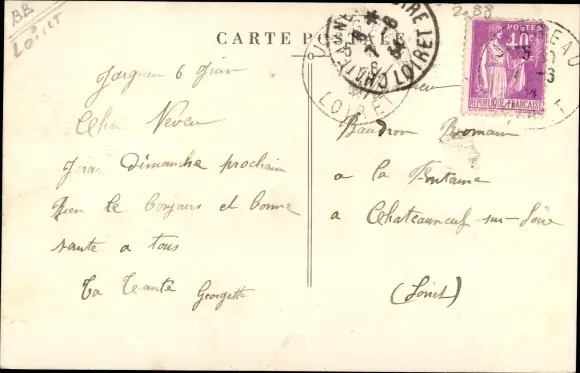 BB
LOIRET
2,88
CARTE POSTALE
LOIRET
POSTES
40c
REPUBLIQUE FRANÇAISE
Jargeau 6 Juin
Cher Neveu
Jirai Dimanche prochain
Bien le bonjour et bonne
sante a tous
Ta Tante Georgette
Baudron Romain
a la Fontaine
a Chateauneuf-sur-Loire
(Loiret)